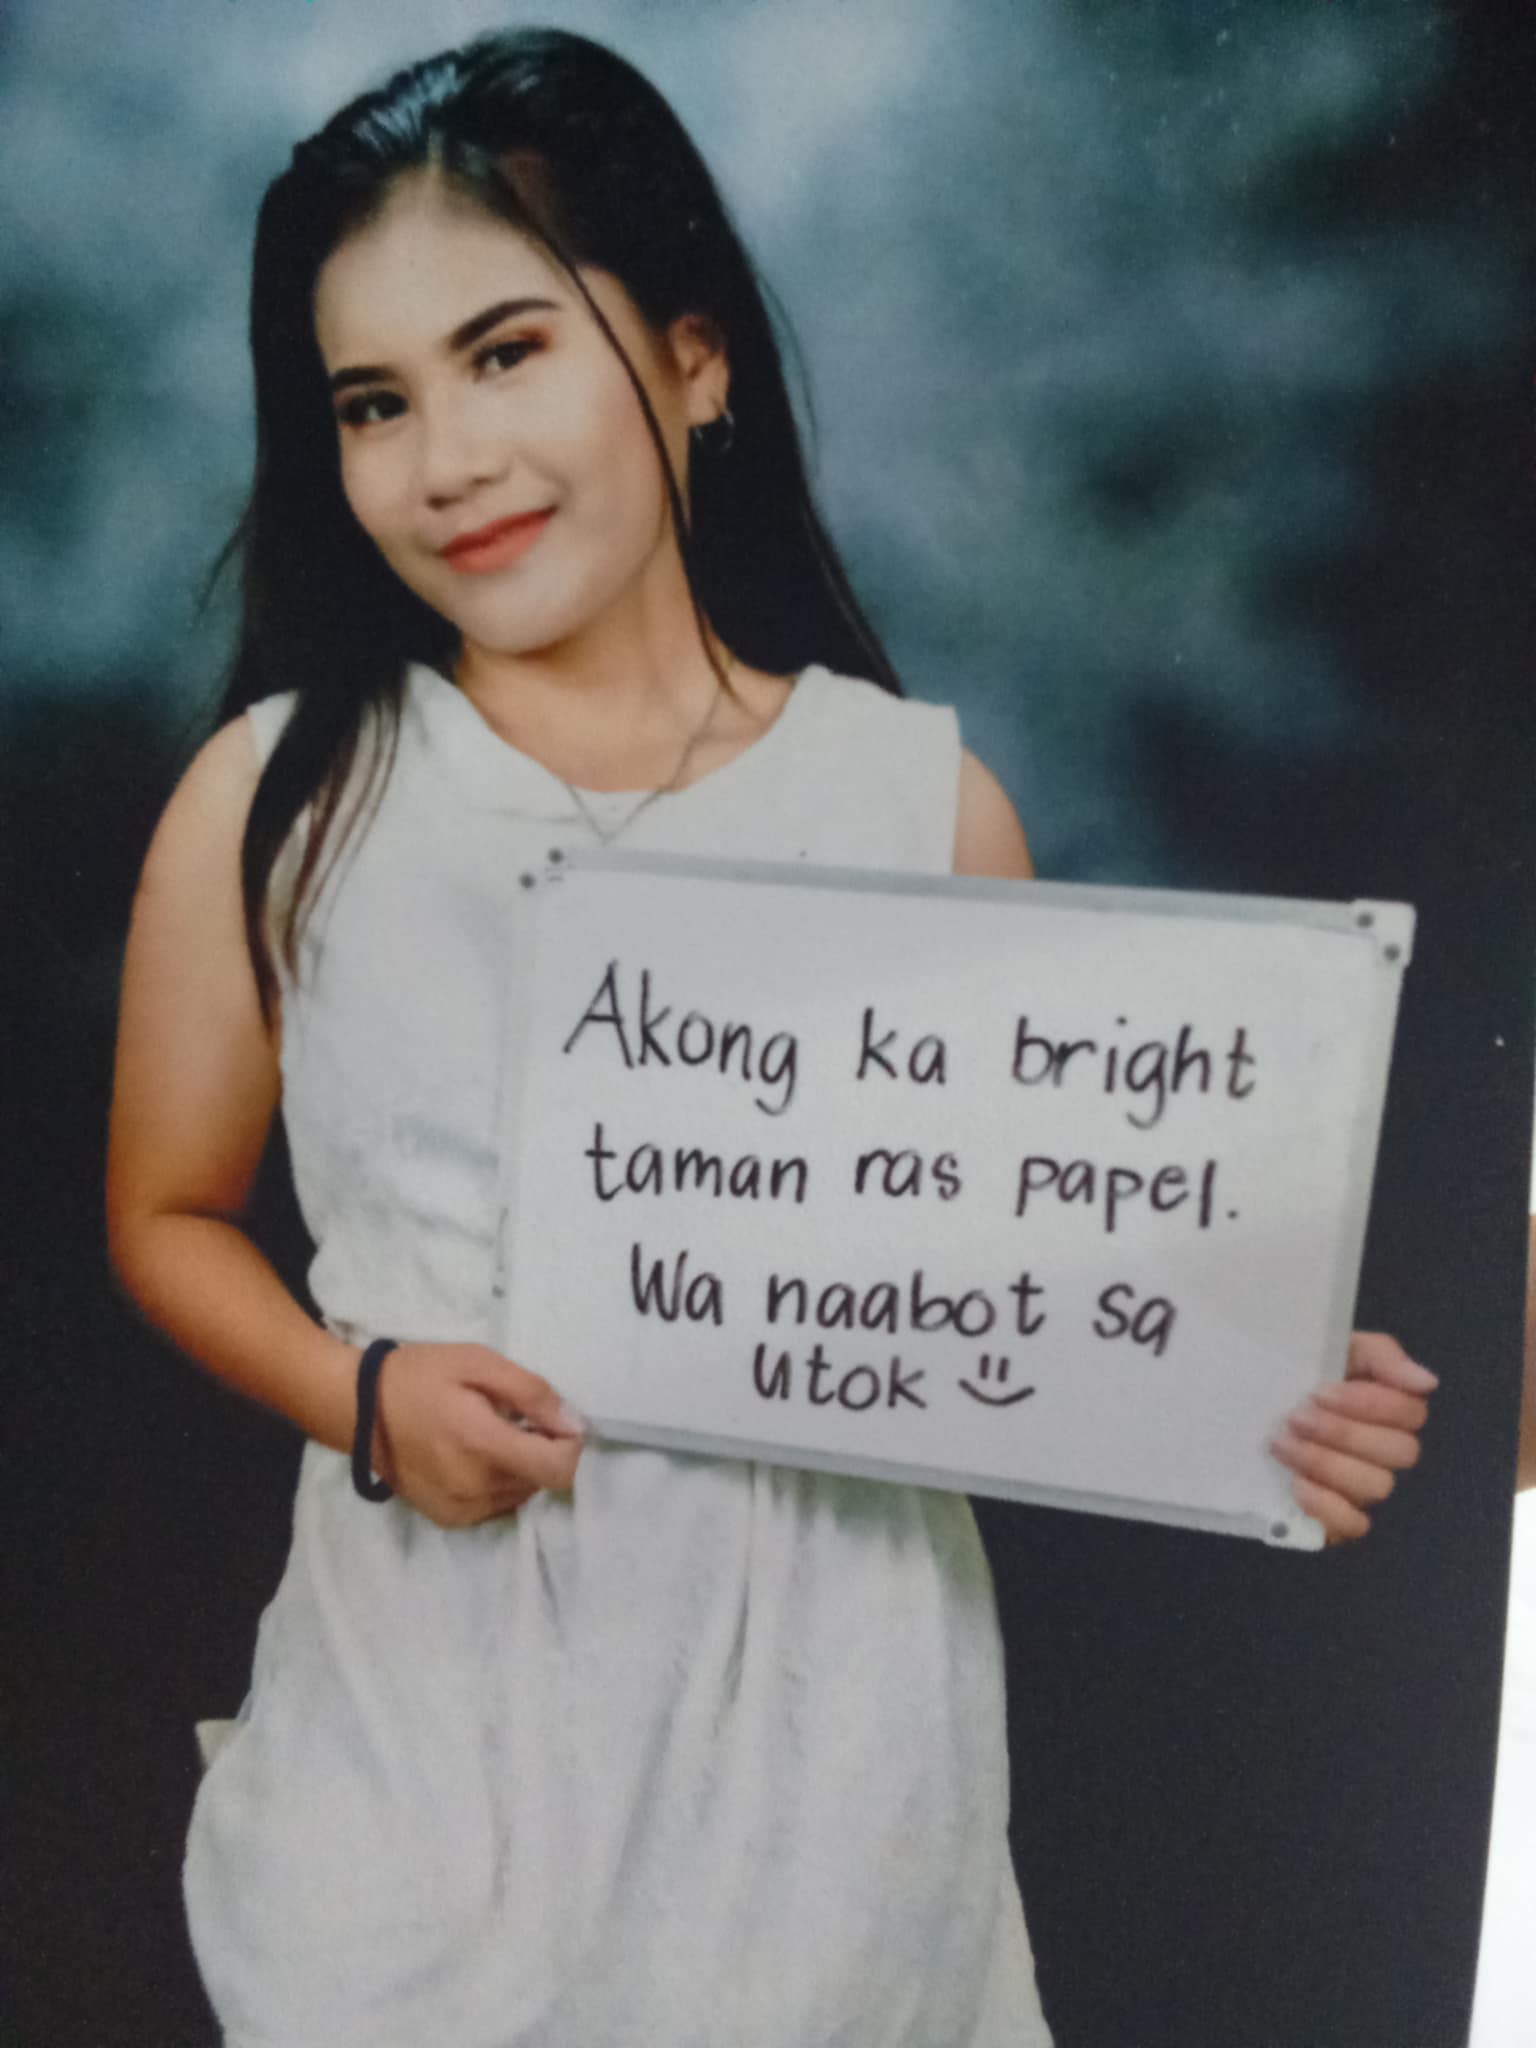 Akong ka bright
taman ras papel.
Wa naabot sa
utok